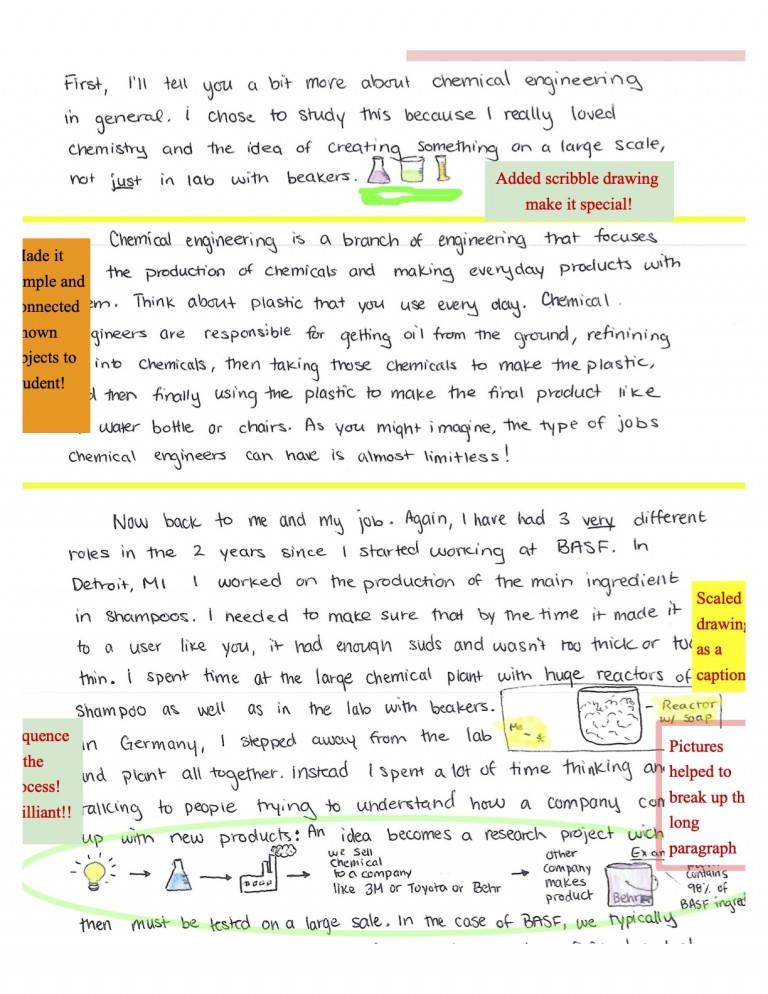 First, I'll tell you a bit more about chemical engineering
in general. I chose to study this because I really loved
chemistry and the idea of creating something on a large scale,
not just in lab with beakers.
Added scribble drawing
make it special!
Chemical engineering is a branch of engineering that focuses
the production of chemicals and making everyday products with
em. Think about plastic that you use every day. Chemical
gineers are responsible for getting oil from the ground, refinining
into chemicals, then taking those chemicals to make the plastic,
then finally using the plastic to make the final product like
water bottle or chairs. As you might imagine, the type of jobs
chemical engineers can have is almost limitless!
ade it
mple and
onnected
nown
bjects to
udent!
Now back to me and my job. Again, I have had 3 very different
roles in the 2 years since I started working at BASF. In
Detroit, MI I worked on the production of the main ingredient
in shampoos. I needed to make sure that by the time it made it
to a user like you, it had enough suds and wasn't too thick or too
thin. I spent time at the large chemical plant with huge reactors of
shampoo as well as in the lab with beakers.
Scaled
drawing
as a
caption
Me
Reactor
w/ soap
In Germany, I stepped away from the lab
and plant all together. Instead I spent a lot of time thinking an
talking to people trying to understand how a company con
up with new products: An idea becomes a research project wich
quence
the
ocess!
illiant!!
Pictures
helped to
break up th
long
paragraph
we sell
chemical
to a company
like 3M or Toyota or Behr
other
company
makes
product
Exam
Behr
contains
98% of
BASF ingre
then must be tested on a large sale. In the case of BASF, we typically